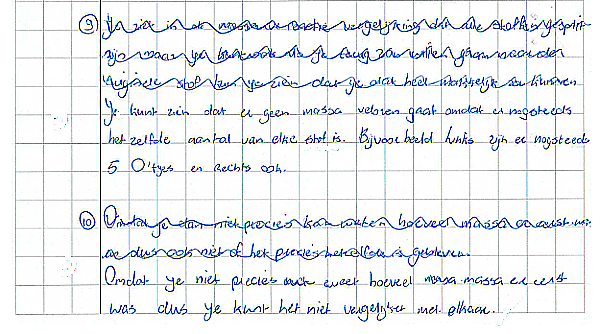 9) Je ziet in de reactie vergelijking dat alle stoffen gesplit
zijn maar je kunt ook als je terug zou willen gaan naar den
originele stof kun je zien dat je dat heel makkelijk zou kunnen
Je kunt zien dat er geen massa veloren gaat omdat er nogsteeds
het zelfde aantal van elke stof is. Bijvoorbeeld links zijn er nogsteeds
5 O'tjes en rechts ook.
10) Omdat je dan niet precies kan weten hoeveel massa er eerst
dus ook niet of het precies hetzelfde is gebleven.
Omdat je niet precies weet hoeveel massa er eerst
was dus je kunt het niet vergelijken met elkaar.